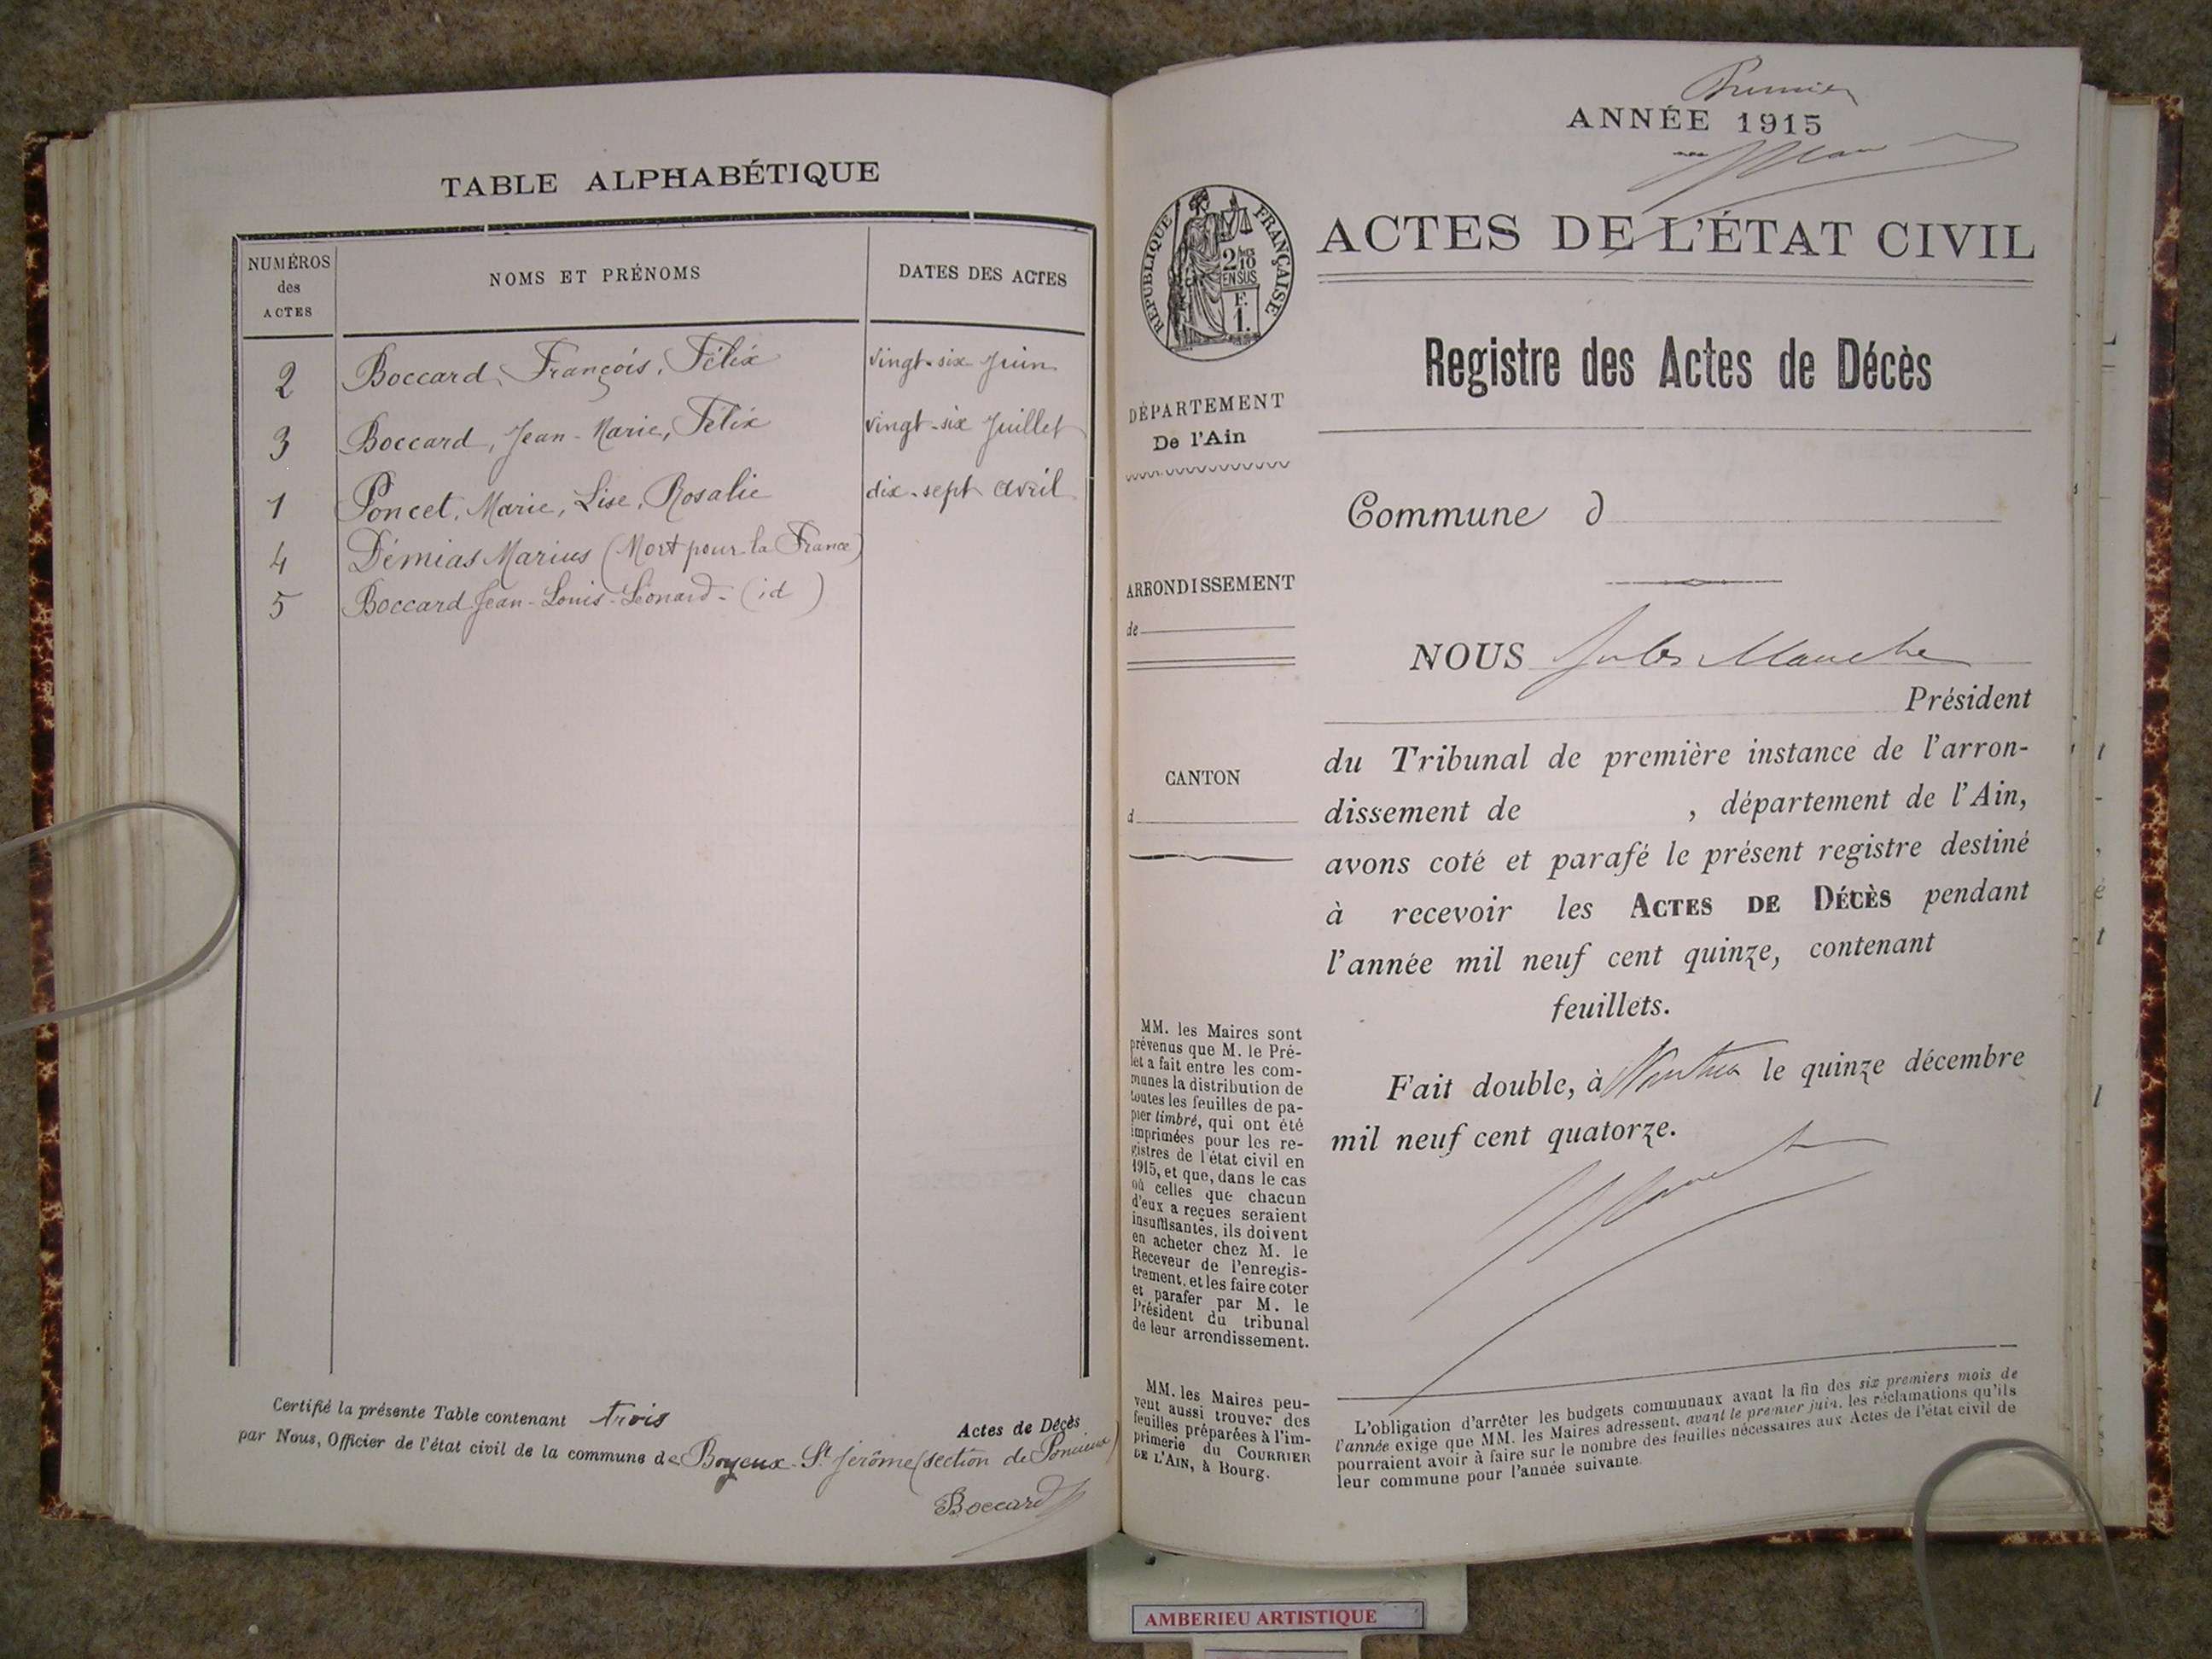 TABLE ALPHABÉTIQUE
NUMÉROS
des
ACTES
NOMS ET PRÉNOMS
DATES DES ACTES
2 Boccard, François, Félix vingt-six Juin
3 Boccard, Jean-Marie, Félix vingt-six Juillet
1 Poncet, Marie, Lise, Rosalie dix-sept avril
4 Démias Marius (Mort pour la France)
5 Boccard Jean-Louis-Léonard - (id)
Certifié la présente Table contenant trois
Actes de Décès
par Nous, Officier de l'état civil de la commune de Boyeux-St Jérôme (section de Poncieux)
Boccard
Premier
ANNÉE 1915
RÉPUBLIQUE FRANÇAISE
2 10
EN SUS
F.
1.
ACTES DE L'ÉTAT CIVIL
Registre des Actes de Décès
DÉPARTEMENT
De l'Ain
Commune d
ARRONDISSEMENT
de
NOUS Jules
Président
CANTON
d
du Tribunal de première instance de l'arron-
dissement de , département de l'Ain,
avons coté et parafé le présent registre destiné
à recevoir les ACTES DE DÉCÈS pendant
l'année mil neuf cent quinze, contenant
feuillets.
Fait double, à Nantua le quinze décembre
mil neuf cent quatorze.
MM. les Maires sont
prévenus que M. le Pré-
fet a fait entre les com-
munes la distribution de
toutes les feuilles de pa-
pier timbré, qui ont été
imprimées pour les re-
gistres de l'état civil en
1915, et que, dans le cas
où celles que chacun
d'eux a reçues seraient
insuffisantes, ils doivent
en acheter chez M. le
Receveur de l'enregis-
trement, et les faire coter
et parafer par M. le
Président du tribunal
de leur arrondissement.
MM. les Maires peu-
vent aussi trouver des
feuilles préparées à l'im-
primerie du COURRIER
DE L'AIN, à Bourg.
L'obligation d'arrêter les budgets communaux avant la fin des six premiers mois de
l'année exige que MM. les Maires adressent, avant le premier juin, les réclamations qu'ils
pourraient avoir à faire sur le nombre des feuilles nécessaires aux Actes de l'état civil de
leur commune pour l'année suivante.
AMBERIEU ARTISTIQUE